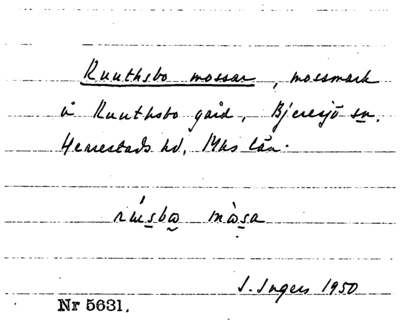 Ruuthsbo mossar, mossmark
å Ruuthsbo gård, Bjeresjö sn.
Herrestads hd, Mhs län.
mosa
I. Ingers 1950
Nr 5631.